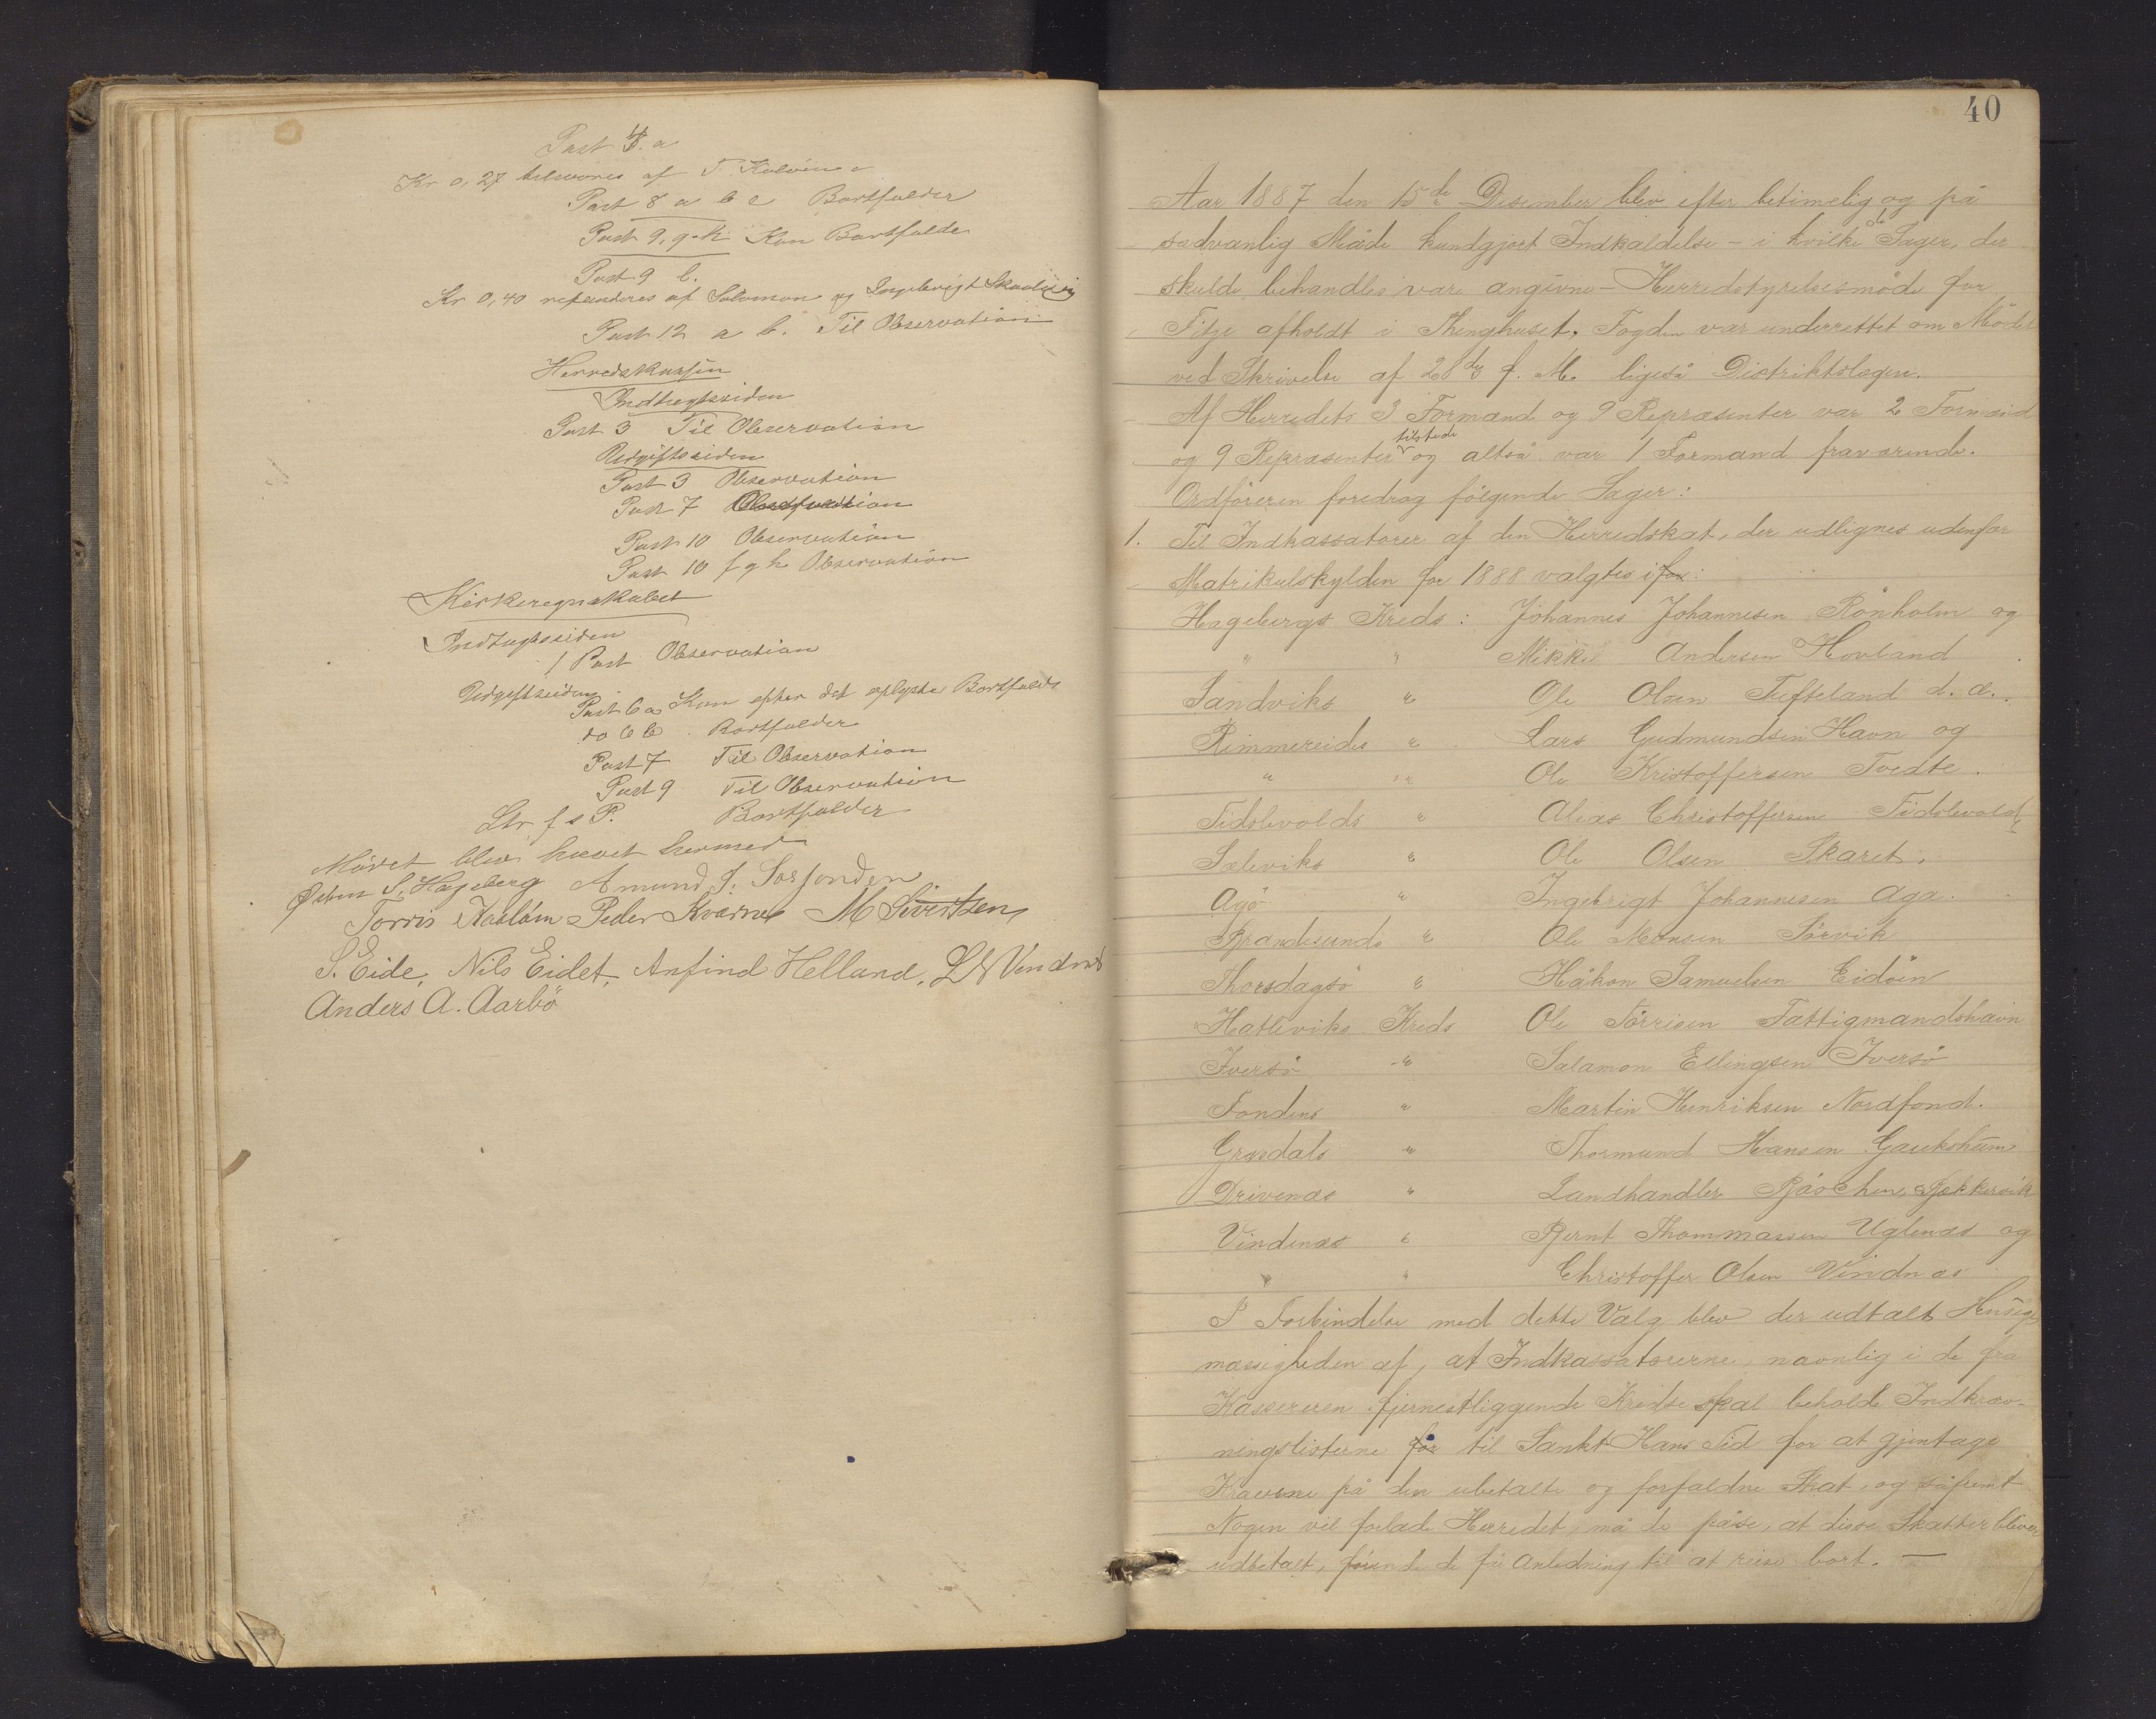 Post 4. a
Kr 0,27 tilsvares af T. Kaløen
Post 8 a b c Bortfalder
Post 9, g-k Kan Bortfalde
Post 9 b.
Kr 0,40 refunderes af Salomon og Ingebrigt
Post 12 a b. Til Observation
Herredskassen
Indtægtssiden
Post 3 Til Observation
Udgiftssiden
Post 3 Observation
Post 7
Post 10 Observation
Post 10 f g h Observation
Kirkeregnskabet
Indtægtssiden
1 Post Observation
Udgiftssiden
Post 6 a Kan efter det oplyste Bortfalde
do 6 b Bortfalder
Post 7 Til Observation
Post 9 Til Observation
Bortfalder
Mødet blev hævet hermed
Østen S. Hageberg Amund J. Sørfonden
Torris Kaaløen Peder Kvernes M Sivertsen
S. Eide, Nils Eidet, Anfind Helland, Vendnes
Anders A. Aarbö
40
Aar 1887 den 15de Desember blev efter betimelig og på
sædvanlig Måde kundgjort Indkaldelse - i hvilke de Sager, der
skulde behandles vare angivne - Herredstyrelsesmöde for
Fitje afholdt i Thinghuset. Fogden var underrettet om Mödet
ved Skrivelse af 28de f. M. ligeså Distriktslægen.
Af Herredets 3 Formænd og 9 Repræsenter var 2 Formænd
og 9 Repræsenter tilstede og altså var 1 Formand fraværende.
Ordföreren foredrog fölgende Sager:
1. Til Indkassatorer af den Herredskat, der udlignes udenfor
Matrikulskylden for 1888 valgtes i for:
Hagebergs Kreds: Johannes Johannesen Rönholm og
" " Mikkel Andersen Hovland
Sandviks " Ole Olsen Tufteland d. æ.
Rimmereids " Lars Gudmundsen Havn og
" " Ole Kristoffersen Tvedte.
Tidslevolds " Alias Christoffersen Tidslevold
Sæleviks " Ole Olsen Skaret.
Agö " Ingebrigt Johannesen Aga.
Brandesunds " Ole Monsen Sörvik
Thorsdagsö " Håkon Samuelsen Eidöen
Hatleviks Kreds Ole Törrisen Fattigmandshavn
Iversö " Salamon Ellingsen Iversö
Fondens " Martin Henriksen Nordfond.
Grøsdals " Thormund Hansen Gauksheim
Drivenæs " Landhandler
Vindenæs " Bernt Thommassen Uglenæs og
" " Christoffer Olsen Vindnæs
I Forbindelse med dette Valg blev der udtalt Hensigts
mæssigheden af, at Indkassatorerne, navnlig i de fra
Kassereren fjernestliggende Kredse skal beholde Indkræv-
ningslisterne før til Sankt Hans Tid for at gjentage
Kravene på den ubetalte og forfaldne Skat, og såfremt
Nogen vil forlade Herredet, må de påse, at disse Skatter bliver
udbetalt, förend de får Anledning til at reise bort. -